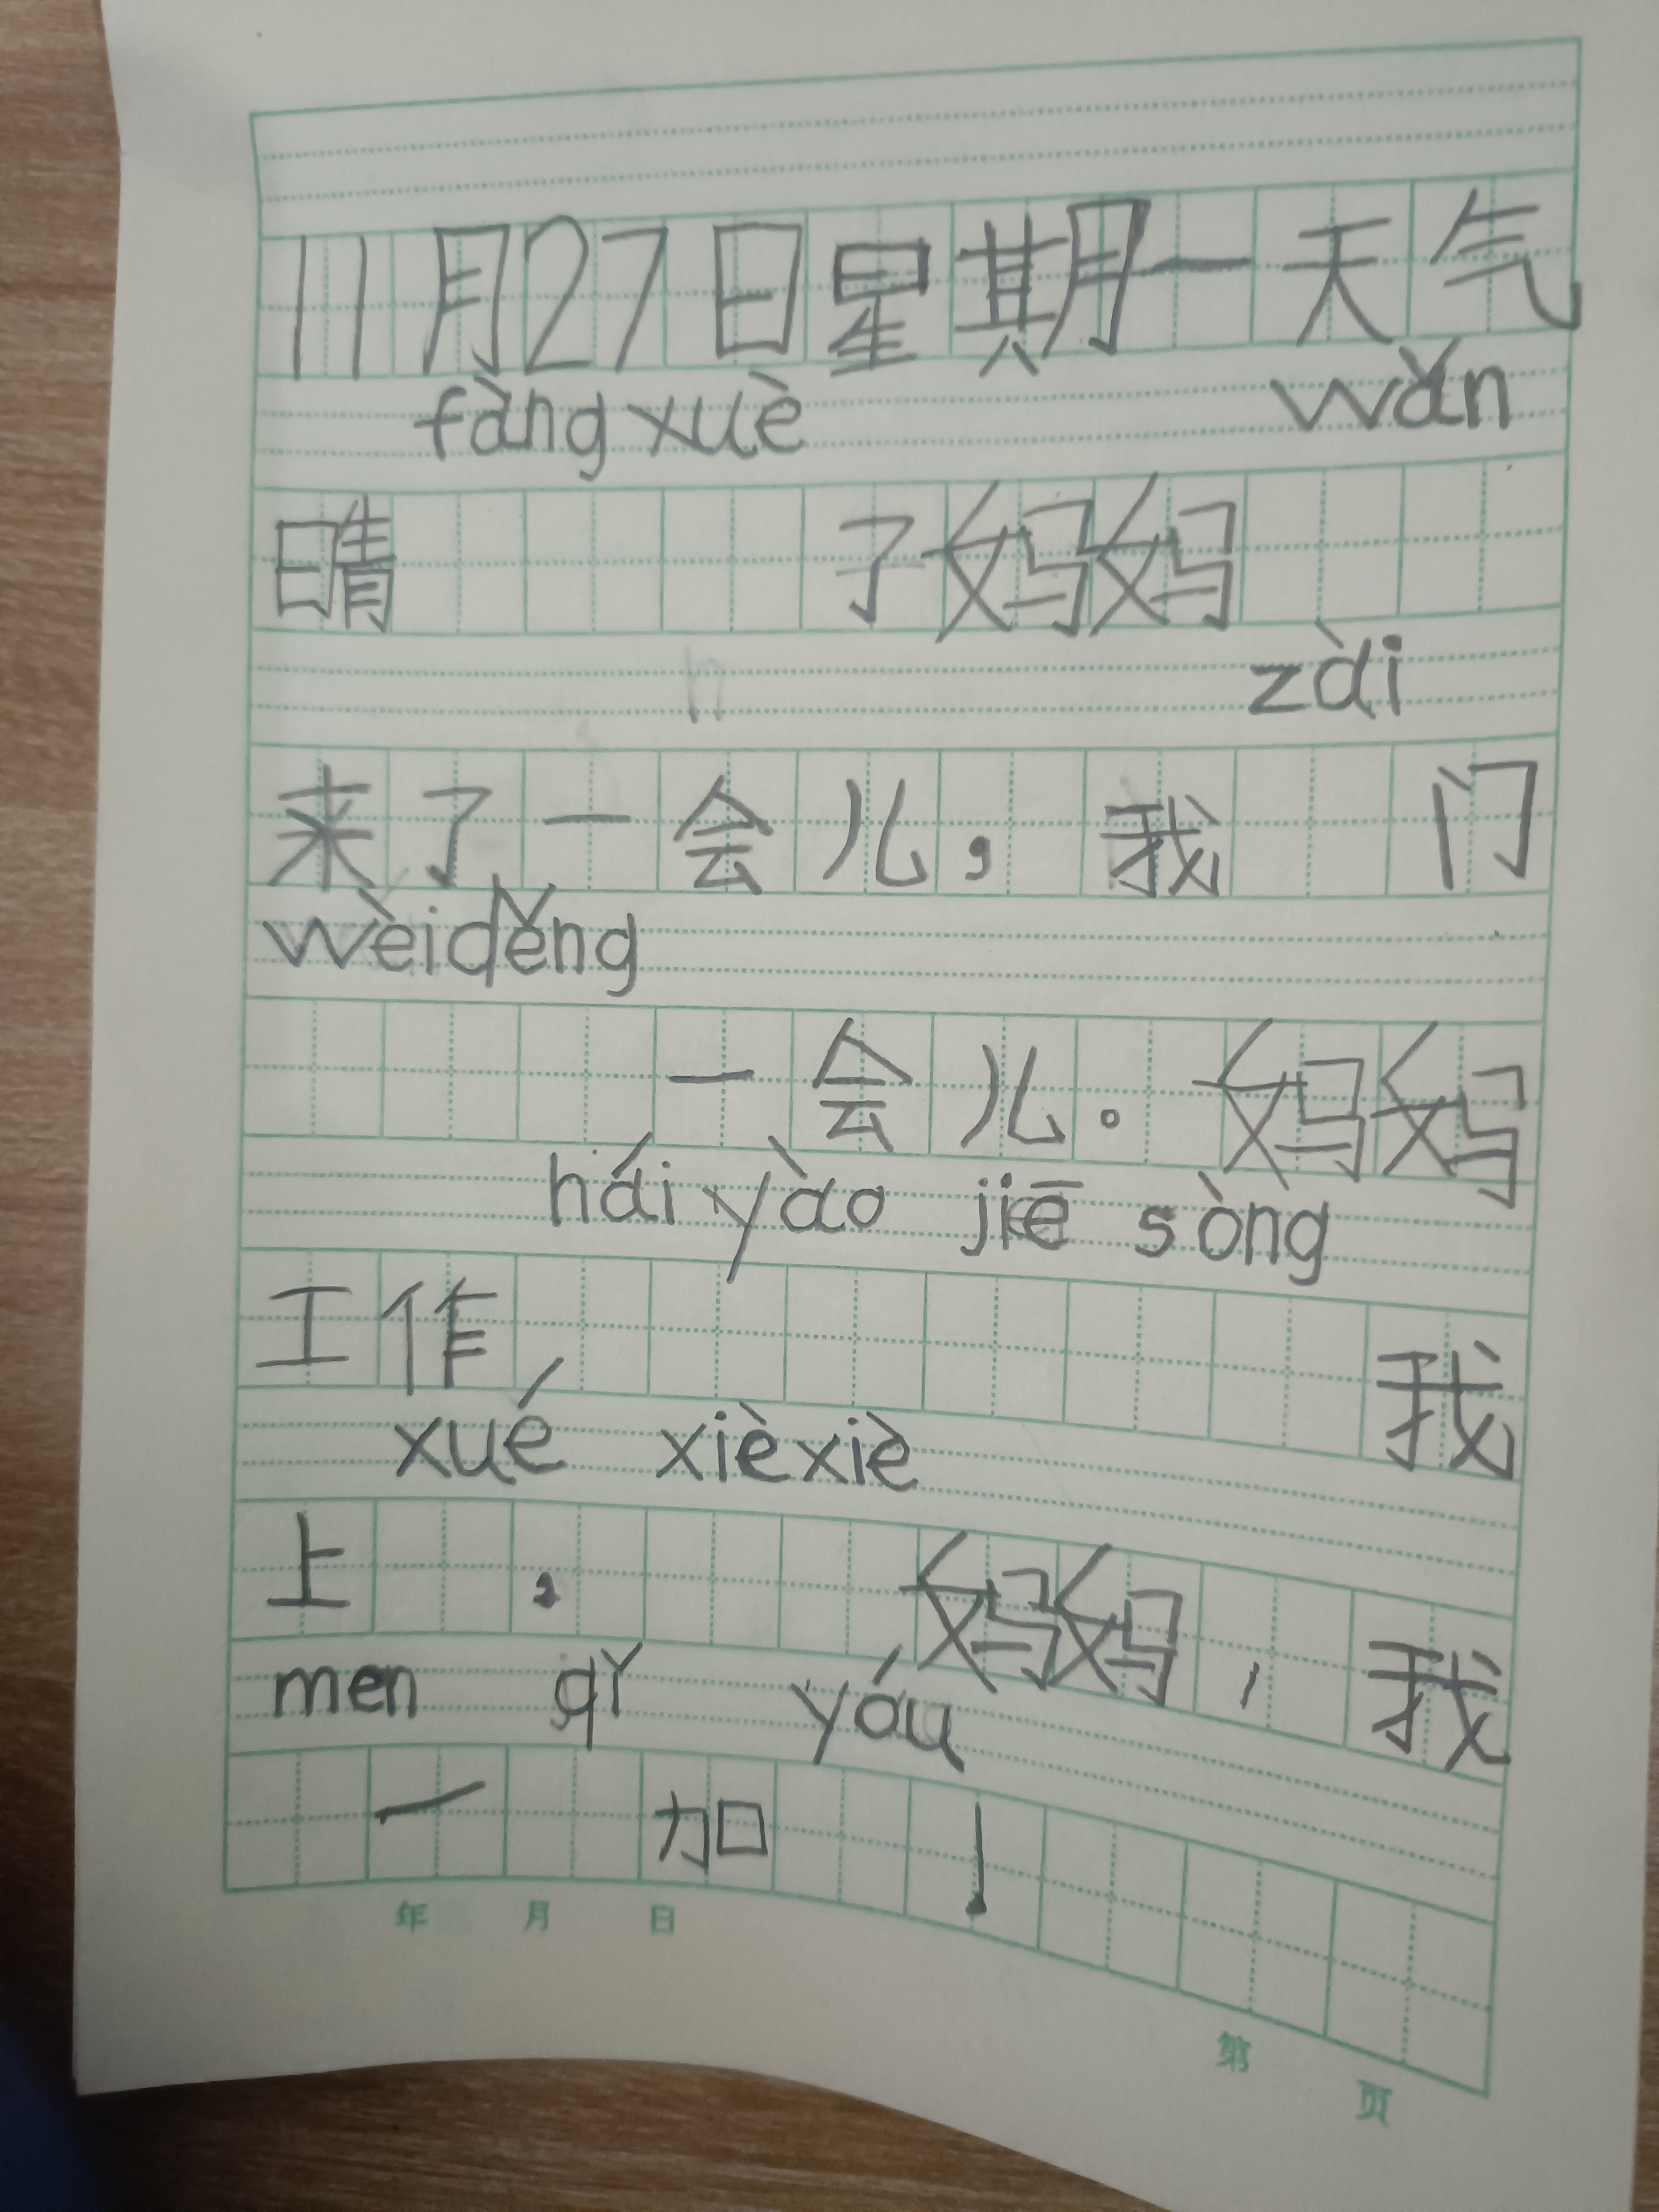 11月27日星期一天气
fàng xuè wǎn
晴 子妈妈
zài
来了一会儿，我 门
wèi děng
一会儿。妈妈
hái yào jiē sòng
工作 我
xué xièxiè
上 , 妈妈，我
men qǐ yóu
一 加 !
年 月 日
第 页